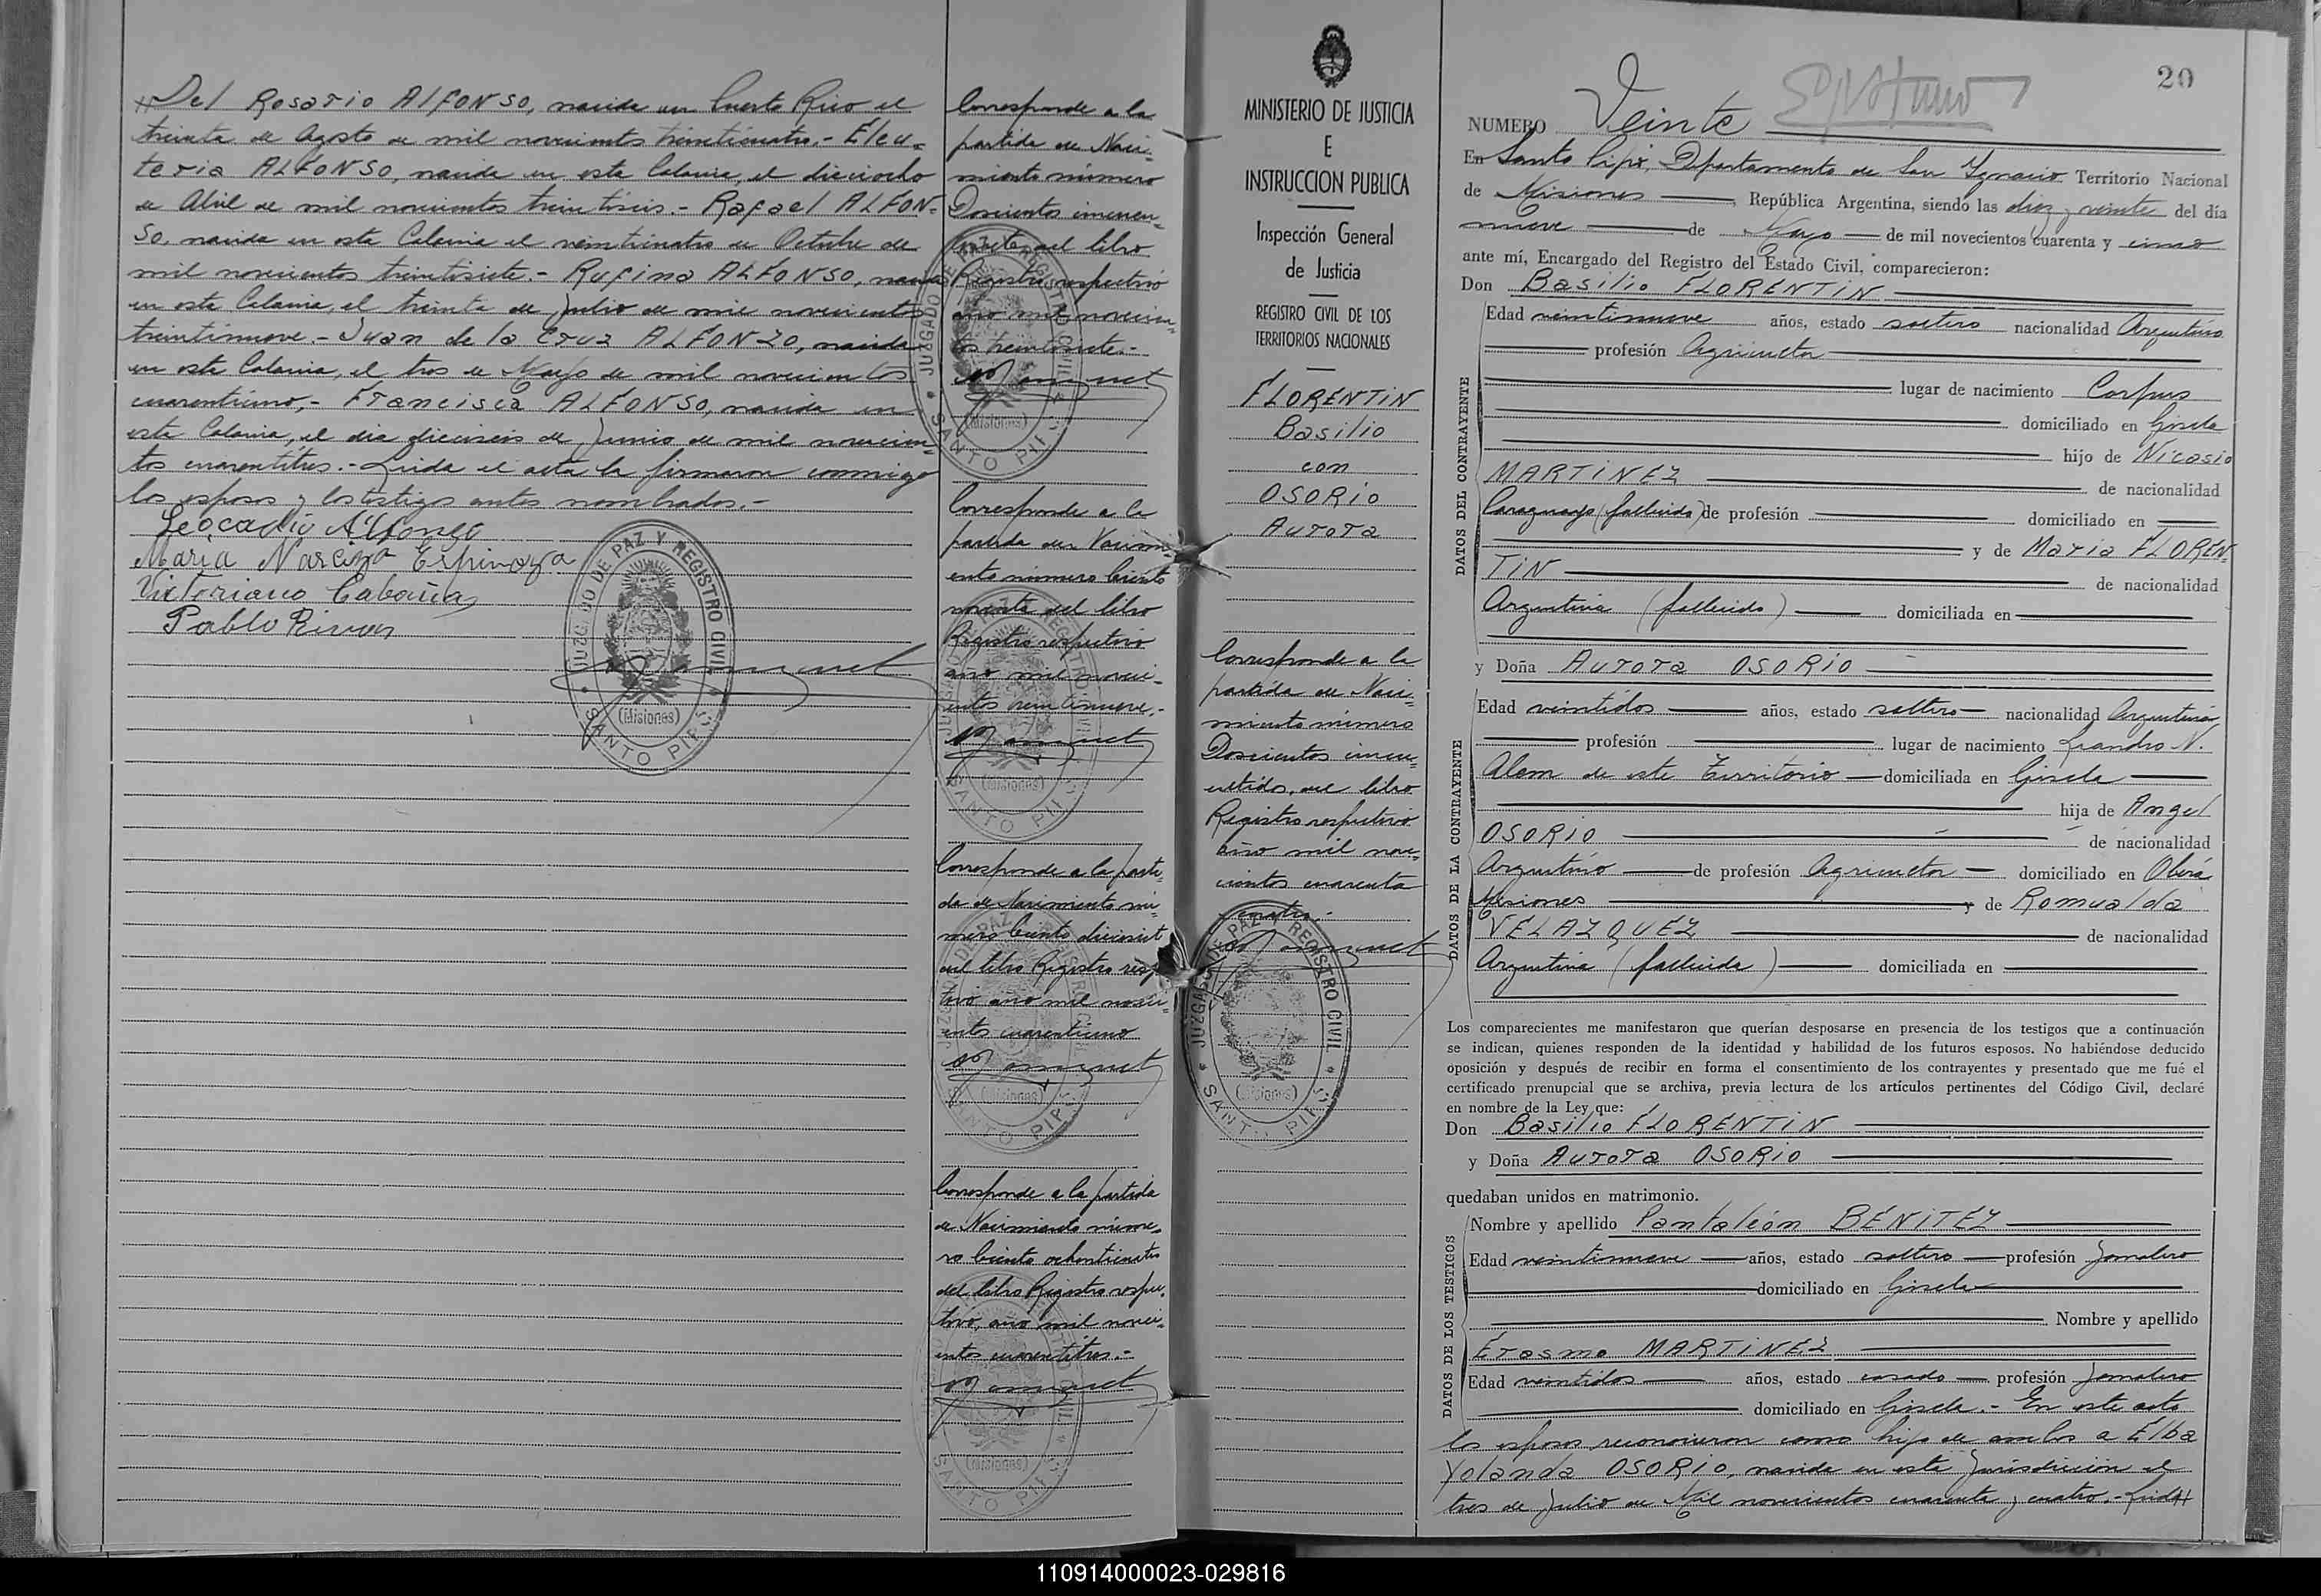 Del Rosario ALFONSO, nacida en Puerto Rico el
treinta de Agosto de mil novecientos treinticuatro.- Eleu-
teria ALFONSO, nacida en esta Colonia, el dieciocho
de Abril de mil novecientos treintiséis.- Rafael ALFON-
SO, nacida en esta Colonia el veinticuatro de Octubre de
mil novecientos treintisiete.- Rufino ALFONSO, nacido
en esta Colonia, el treinta de Julio de mil novecientos
treintinueve - Juan de la Cruz ALFONZO, nacida
en esta Colonia, el tres de Mayo de mil novecientos
cuarentiuno,- Francisca ALFONSO, nacida en
esta Colonia, el dia dieciseis de Junio de mil novecien-
tos cuarentitres.- Leida el acta la firmaron conmigo
los esposos y los testigos antes nombrados.-
Leocadio Alfonso
Maria Narciza Espinoza
Victoriano Cabañas
Pablo Rivas
JUZGADO DE PAZ Y REGISTRO CIVIL
(Misiones)
SANTO PIPÓ
Corresponde a la
partida de Naci-
miento número
Doscientos cincuen-
tisiete, del libro
Registro respectivo
año mil novecien-
tos treintisiete.-
Corresponde a la
partida de Nacimi-
ento número Ciento
noventa del libro
Registro respectivo
año mil noveci-
entos treintinueve.-
Corresponde a la parti-
da de Nacimiento nú-
mero Ciento diecisiete
del libro Registro respec-
tivo año mil noveci-
entos cuarentiuno
Corresponde a la partida
de Nacimiento núme-
ro Ciento ochenticuatro
del libro Registro respec-
tivo, año mil noveci-
entos cuarentitres.-
MINISTERIO DE JUSTICIA
E
INSTRUCCION PUBLICA
Inspección General
de Justicia
REGISTRO CIVIL DE LOS
TERRITORIOS NACIONALES
FLORENTIN
Basilio
con
OSORIO
Aurora
Corresponde a la
partida de Naci-
miento número
Doscientos cincu-
entidos, del libro
Registro respectivo
año mil nove-
cientos cuarenta
y cuatro.-
JUZGADO DE PAZ Y REGISTRO CIVIL
(Misiones)
SANTO PIPÓ
20
NUMERO Veinte
En Santo Pipó, Departamento de San Ignacio Territorio Nacional
de Misiones, República Argentina, siendo las diez y veinte del día
nueve de Mayo de mil novecientos cuarenta y cinco
ante mí, Encargado del Registro del Estado Civil, comparecieron:
Don Basilio FLORENTIN
DATOS DEL CONTRAYENTE
Edad veintinueve años, estado soltero nacionalidad Argentino
profesión Agricultor
lugar de nacimiento Corpus
domiciliado en Gisela
hijo de Nicasio
MARTINEZ de nacionalidad
Paraguayo (fallecido) de profesión domiciliado en
y de Maria FLOREN-
TIN de nacionalidad
Argentina (fallecida) domiciliada en
y Doña Aurora OSORIO
DATOS DE LA CONTRAYENTE
Edad veintidos años, estado soltera nacionalidad Argentina
profesión lugar de nacimiento Leandro N.
Alem de este Territorio domiciliada en Gisela
hija de Angel
OSORIO de nacionalidad
Argentino de profesión Agricultor domiciliado en Oberá
Misiones y de Romualda
VELAZQUEZ de nacionalidad
Argentina (fallecida) domiciliada en
Los comparecientes me manifestaron que querían desposarse en presencia de los testigos que a continuación
se indican, quienes responden de la identidad y habilidad de los futuros esposos. No habiéndose deducido
oposición y después de recibir en forma el consentimiento de los contrayentes y presentado que me fué el
certificado prenupcial que se archiva, previa lectura de los artículos pertinentes del Código Civil, declaré
en nombre de la Ley que:
Don Basilio FLORENTIN
y Doña Aurora OSORIO
quedaban unidos en matrimonio.
DATOS DE LOS TESTIGOS
Nombre y apellido Pantaleón BENITEZ
Edad veintinueve años, estado soltero profesión Jornalero
domiciliado en Gisela
Nombre y apellido
Erasmo MARTINEZ
Edad veintidos años, estado casado profesión Jornalero
domiciliado en Gisela.- En este acto
los esposos reconocieron como hija de ambos a Elba
Yolanda OSORIO, nacida en esta Jurisdicción el
tres de Julio de Mil novecientos cuarenta y cuatro.- Leida
110914000023-029816